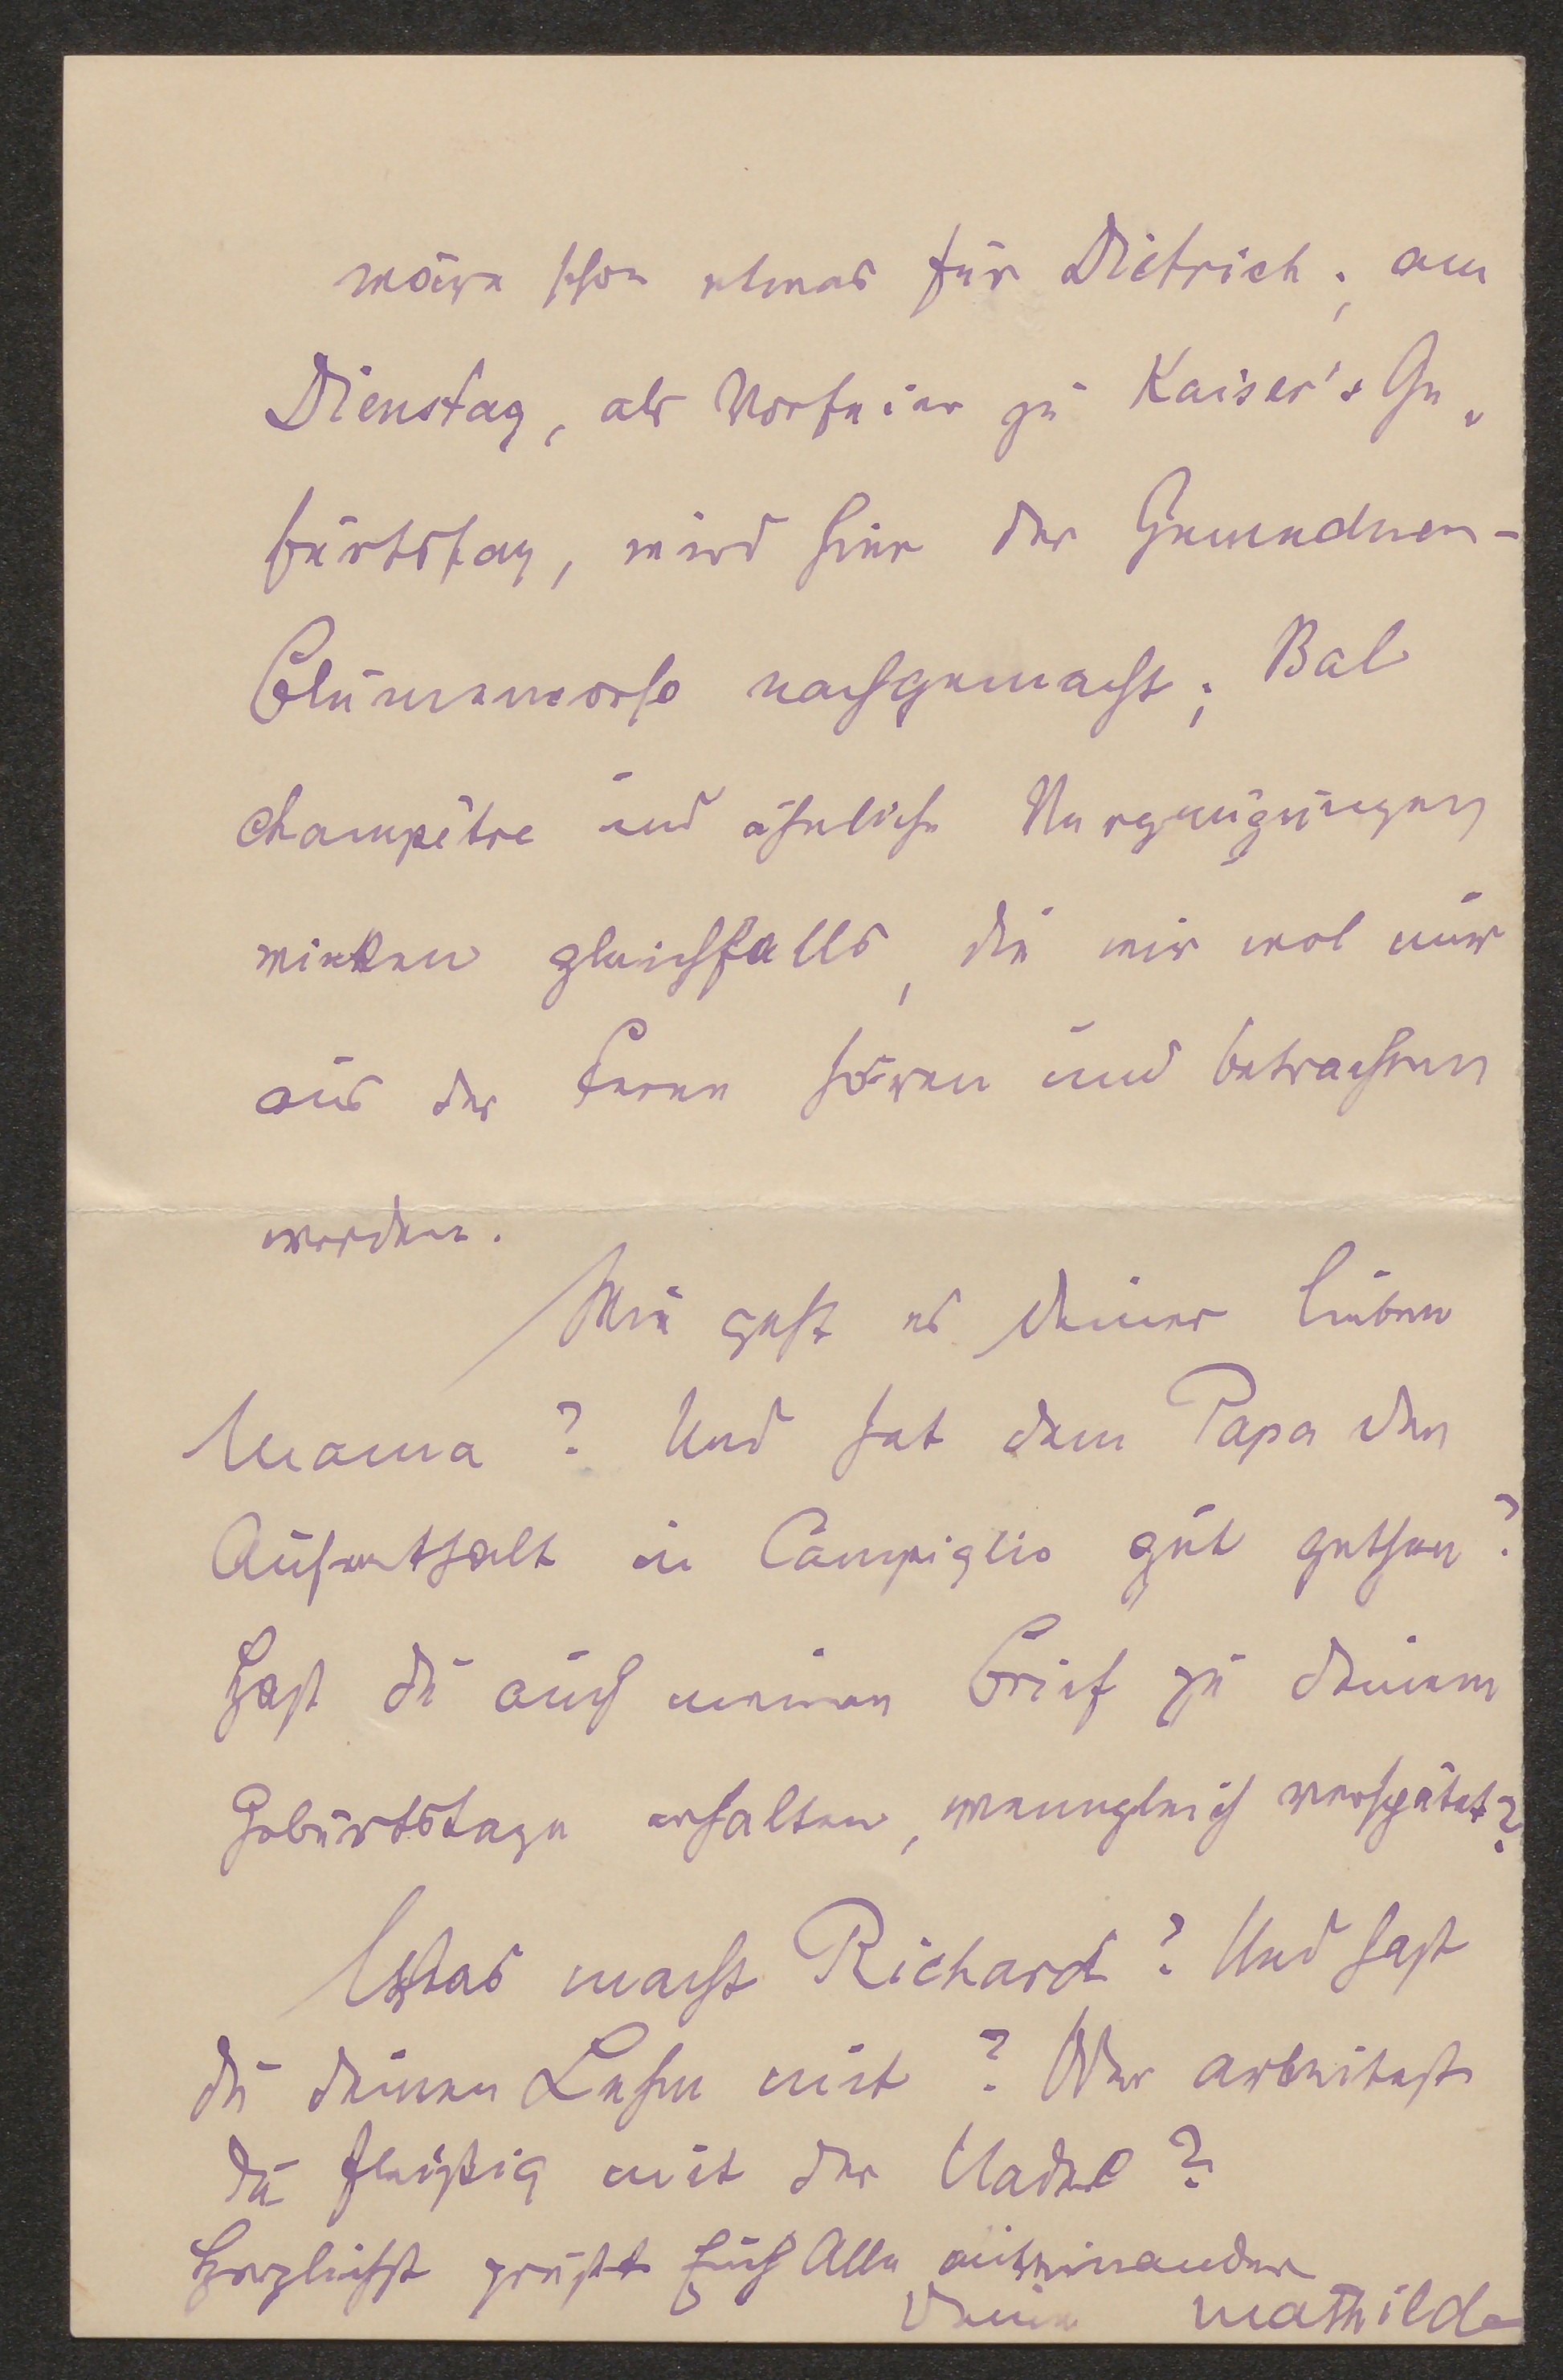 wäre schon etwas für Dietrich; am
Dienstag, als Vorfeier zu Kaiser's Ge-
burtstag, wird hier der Gmundner-
Blumencorso nachgemacht; Bal
champêtre und ähnliche Vergnügungen
winken gleichfalls, die wir wol nur
aus der Ferne hören und betrachten
werden.
Wie geht es Deiner lieben
Mama? Und hat dem Papa der
Aufenthalt in Campiglio gut gethan?
Hast du auch meinen Brief zu deinem
Geburtstage erhalten, wenngleich verspätet?
Was macht Richard? Und hast
du deinen mit? Oder arbeitest
du fleißig mit der Nadel?
Herzlichst grüßt Euch Alle miteinander
Deine Mathilde